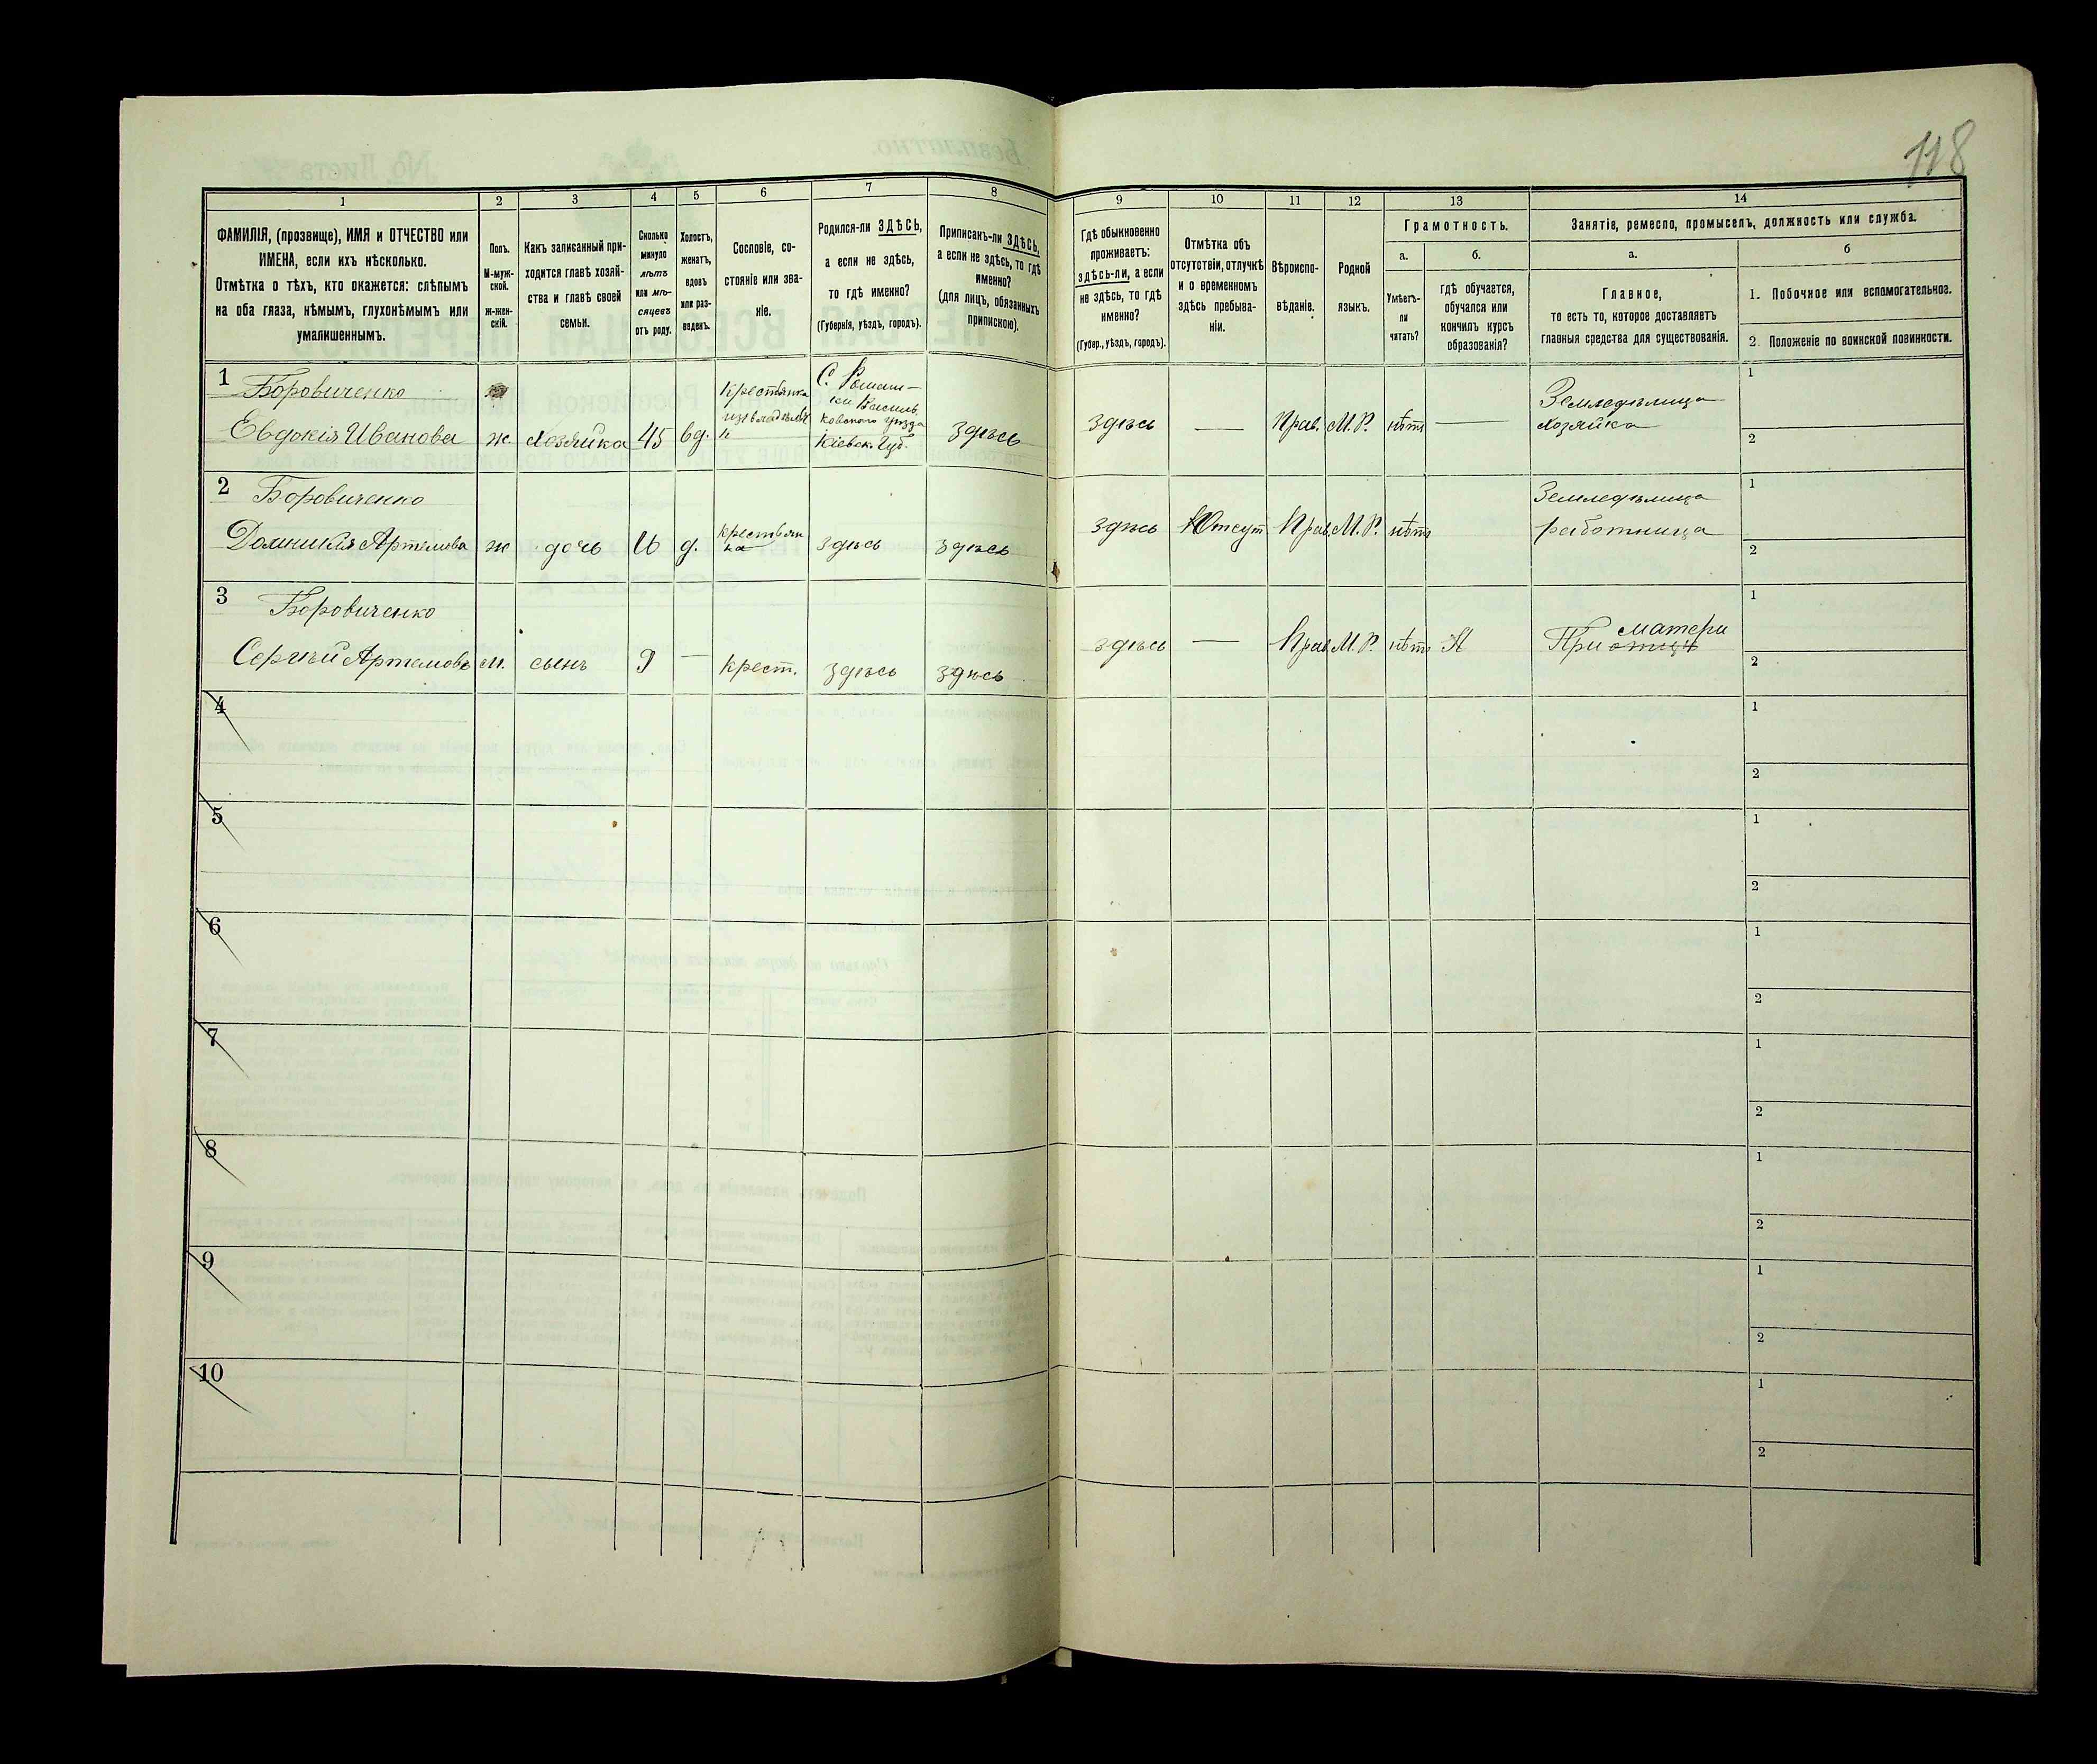 118
1
2
3
4
5
6
7
8
9
10
11
12
13
14
ФАМИЛІЯ, (прозвище), ИМЯ и ОТЧЕСТВО или
ИМЕНА, если ихъ нѣсколько.
Отмѣтка о тѣхъ, кто окажется: слѣпымъ
на оба глаза, нѣмымъ, глухонѣмымъ или
умалишеннымъ.
Полъ.
М-муж-
ской.
ж-жен-
скій.
Какъ записанный при-
ходится главѣ хозяй-
ства и главѣ своей
семьи.
Сколько
минуло
лѣтъ
или мѣ-
сяцевъ
отъ роду.
Холостъ,
женатъ,
вдовъ
или раз-
веденъ.
Сословіе, со-
стояніе или зва-
ніе.
Родился-ли ЗДѢСЬ,
а если не здѣсь,
то гдѣ именно?
(Губернія, уѣздъ, городъ).
Приписанъ-ли ЗДѢСЬ,
а если не здѣсь, то гдѣ
именно?
(для лицъ, обязанныхъ
припискою).
Гдѣ обыкновенно
проживаетъ:
здѣсь-ли, а если
не здѣсь, то гдѣ
именно?
(Губер., уѣздъ, городъ).
Отмѣтка объ
отсутствіи, отлучкѣ
и о временномъ
здѣсь пребыва-
ніи.
Вѣроиспо-
вѣданіе.
Родной
языкъ.
Грамотность.
а.
Умѣетъ-
ли
читать?
б.
гдѣ обучается,
обучался или
кончилъ курсъ
образованія?
Занятіе, ремесло, промыселъ, должность или служба.
а.
Главное,
то есть то, которое доставляетъ
главныя средства для существованія.
б
1. Побочное или вспомогательное.
2. Положеніе по воинской повинности.
1
Боровиченко
Евдокія Иванова
ж
Хозяйка
45
вд.
крестьянка
изъ владѣльч
С. Ромаш-
ки Василь
ковского уѣзда
Кіевск. Губ.
здѣсь
здѣсь
—
Прав.
М.Р.
нѣтъ
—
Земледѣлица
хозяйка
1
2
2
Боровиченко
Домникія Артемова
ж
дочь
16
д.
крестьян
ка
здѣсь
здѣсь
здѣсь
Отсут
Прав.
М.Р.
нѣтъ
Земледѣлица
работница
1
2
3
Боровиченко
Сергѣй Артемовъ
м.
сынъ
9
—
крест.
здѣсь
здѣсь
здѣсь
—
Прав.
М.Р.
нѣтъ
матери
При отцѣ
1
2
4
1
2
5
1
2
6
1
2
7
1
2
8
1
2
9
1
2
10
1
2